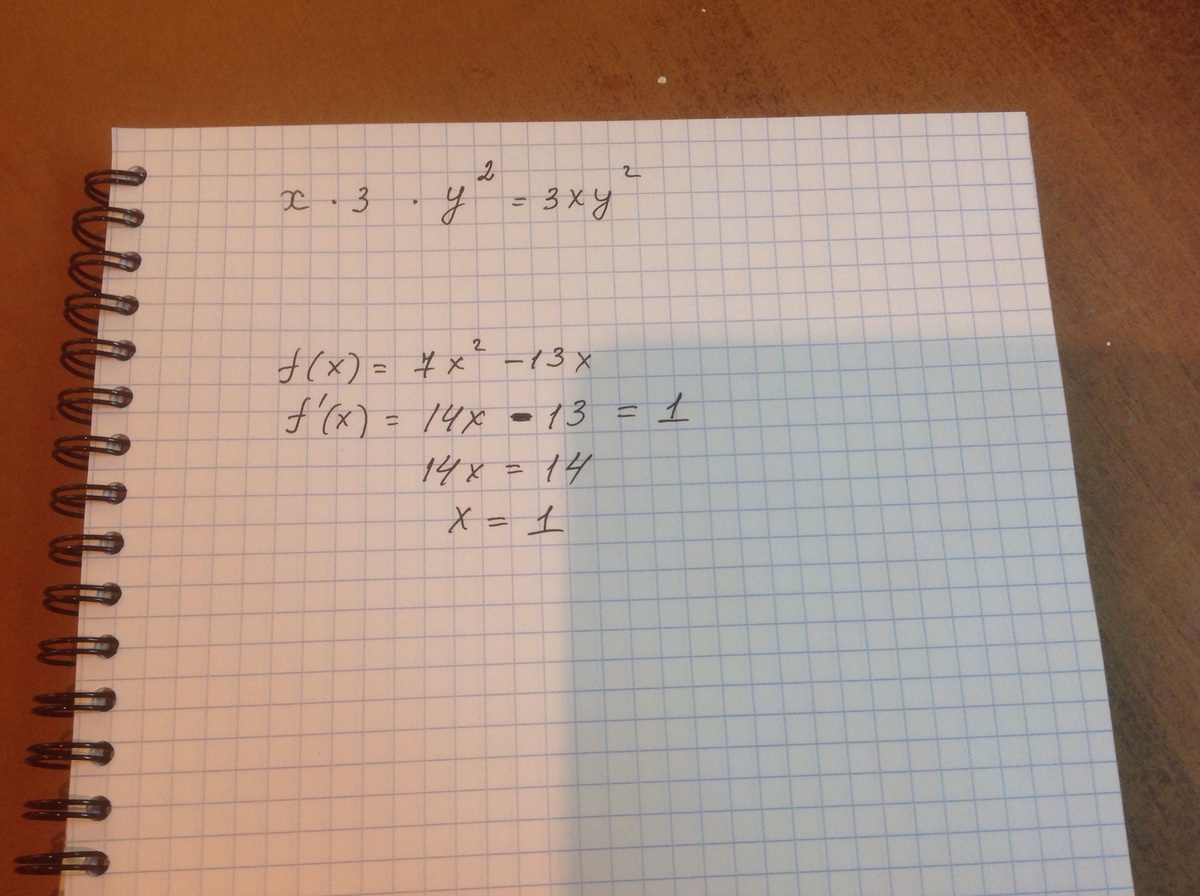 x · 3 · y² = 3xy²
f(x) = 7x² - 13x
f'(x) = 14x - 13 = 1
14x = 14
x = 1